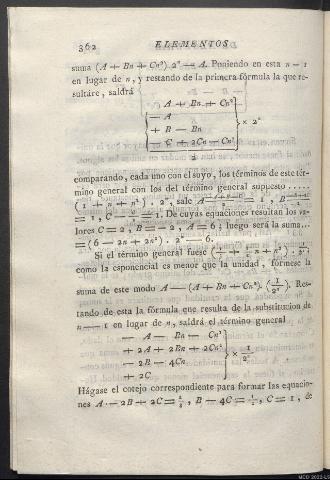 362 ELEMENTOS
suma (A + Bn + Cn²) 2ⁿ — A. Poniendo en esta n — 1
en lugar de n, y restando de la primera fórmula la que re-
sultáre, saldrá
A + Bn + Cn²
— A
+ B — Bn
— C + 2Cn — Cn²
× 2ⁿ
2
comparando, cada uno con el suyo, los términos de este tér-
mino general con los del término general supuesto .....
(1 + n + n²) . 2ⁿ, sale
= 1, = 1. De cuyas equaciones resultan los va-
lores C = 2, B = — 2, A = 6; luego será la suma...
= (6 — 2n + 2n²) . 2ⁿ — 6.
Si el término general fuese
como la esponencial es menor que la unidad, fórmese la
suma de este modo A — (A + Bn + Cn²). (1/2ⁿ). Res-
tando de esta la fórmula que resulta de la substitucion de
n — 1 en lugar de n, saldrá el término general
— A — Bn — Cn²
+ 2A + 2Bn + 2Cn²
— 2B — 4Cn
+ 2C
× 1/2ⁿ.
Hágase el cotejo correspondiente para formar las equacio-
nes A — 2B + 2C = , B — 4C = , C = 1, de